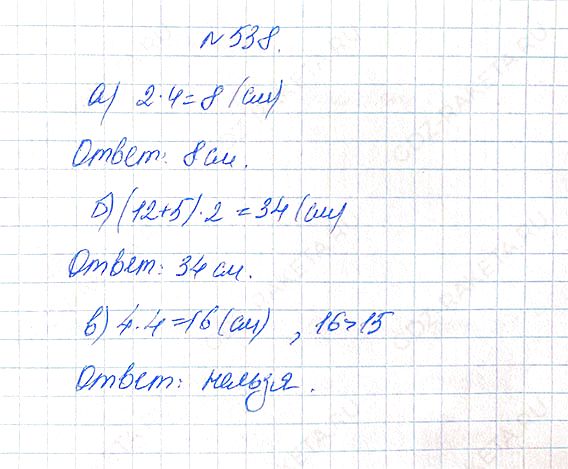 №538.
а) 2·4=8 (см)
Ответ: 8 см.
б) (12+5)·2 =34 (см)
Ответ: 34 см.
в) 4·4=16 (см) , 16>15
Ответ: нельзя.